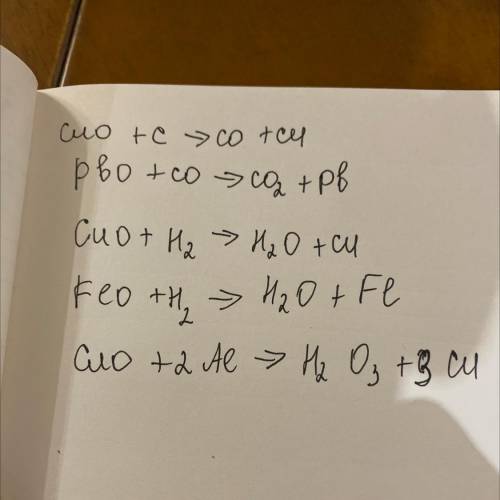 CuO + C → CO + Cu
PbO + CO → CO₂ + Pb
CuO + H₂ → H₂O + Cu
FeO + H₂ → H₂O + Fe
CuO + 2 Al → H₂ O₃ + 3 Cu